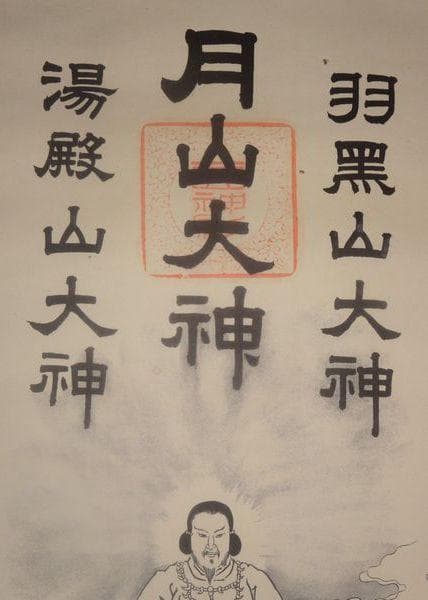 羽黑山大神
月山大神
湯殿山大神